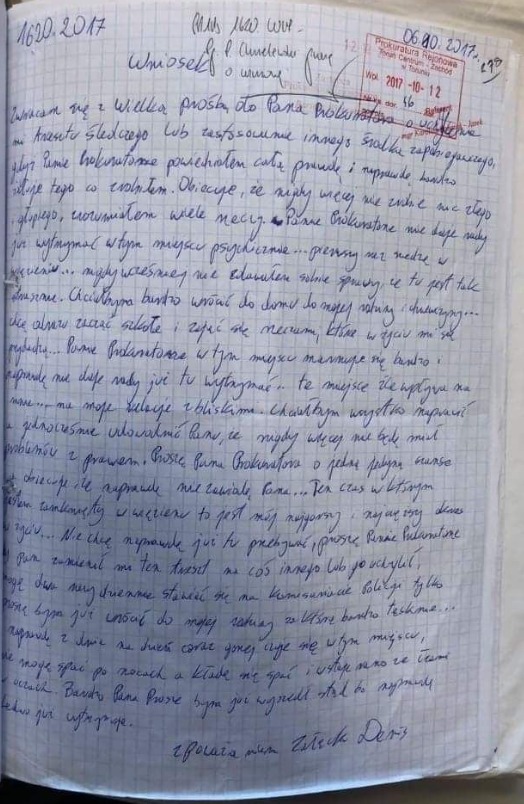 1620.2017
06.10.2017.
Wniosek
o
Prokuratura Rejonowa
Toruń Centrum - Zachód
w Toruniu
Wpł. 2017 -10- 12
Zwracam się z Wielką prośbą do Pana Prokuratora o uchylenie
mi Aresztu Śledczego lub zastosowanie innego środka zapobiegawczego,
gdyż Panie Prokuratorze powiedziałem całą prawdę i naprawdę bardzo
żałuje tego co zrobiłem. Obiecuje, że nigdy więcej nie zrobie nic złego
i głupiego, zrozumiałem wiele rzeczy. Panie Prokuratorze nie daje rady
już wytrzymać w tym miejscu psychicznie... pierwszy raz siedze w
więzieniu... nigdy wcześniej nie zdawałem sobie sprawy, że tu jest tak
strasznie. Chciałbym bardzo wrócić do domu do mojej rodziny i dziewczyny...
chcę od razu zacząć szkołe i zająć się rzeczami, które w życiu mi się
przydadzą... Panie Prokuratorze w tym miejscu marnuje się bardzo i
naprawdę nie daje rady już tu wytrzymać.. te miejsce źle wpływa na
mnie... na moje relacje z bliskimi. Chciałbym wszystko naprawić
a jednocześnie udowodnić Panu, że nigdy więcej nie będę miał
problemów z prawem. Proszę Pana Prokuratora o jedną jedyną szanse
obiecuje że naprawdę nie zawiodę Pana... Ten czas w którym
jestem zamknięty w więzieniu to jest mój najgorszy i najcięższy okres
w życiu... Nie chcę naprawdę już tu przebywać, proszę Panie Prokuratorze
by Pan zamienił mi ten areszt na coś innego lub go uchylił,
mogę dwa razy dziennie stawiać się na Komisariacie Policji tylko
proszę bym już wrócił do mojej rodziny za którą bardzo tęsknie...
naprawdę z dnia na dzień coraz gorzej czuje się w tym miejscu,
nie mogę spać po nocach a kłade się spać i wstaje rano ze łzami
w oczach. Bardzo Pana Prosze bym już wyszedł stąd bo naprawdę
ledwo już wytrzymuje.
z poważaniem Denis